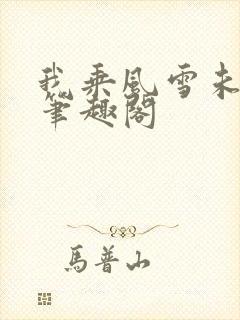 我乘风雪未
笔趣阁
马普山